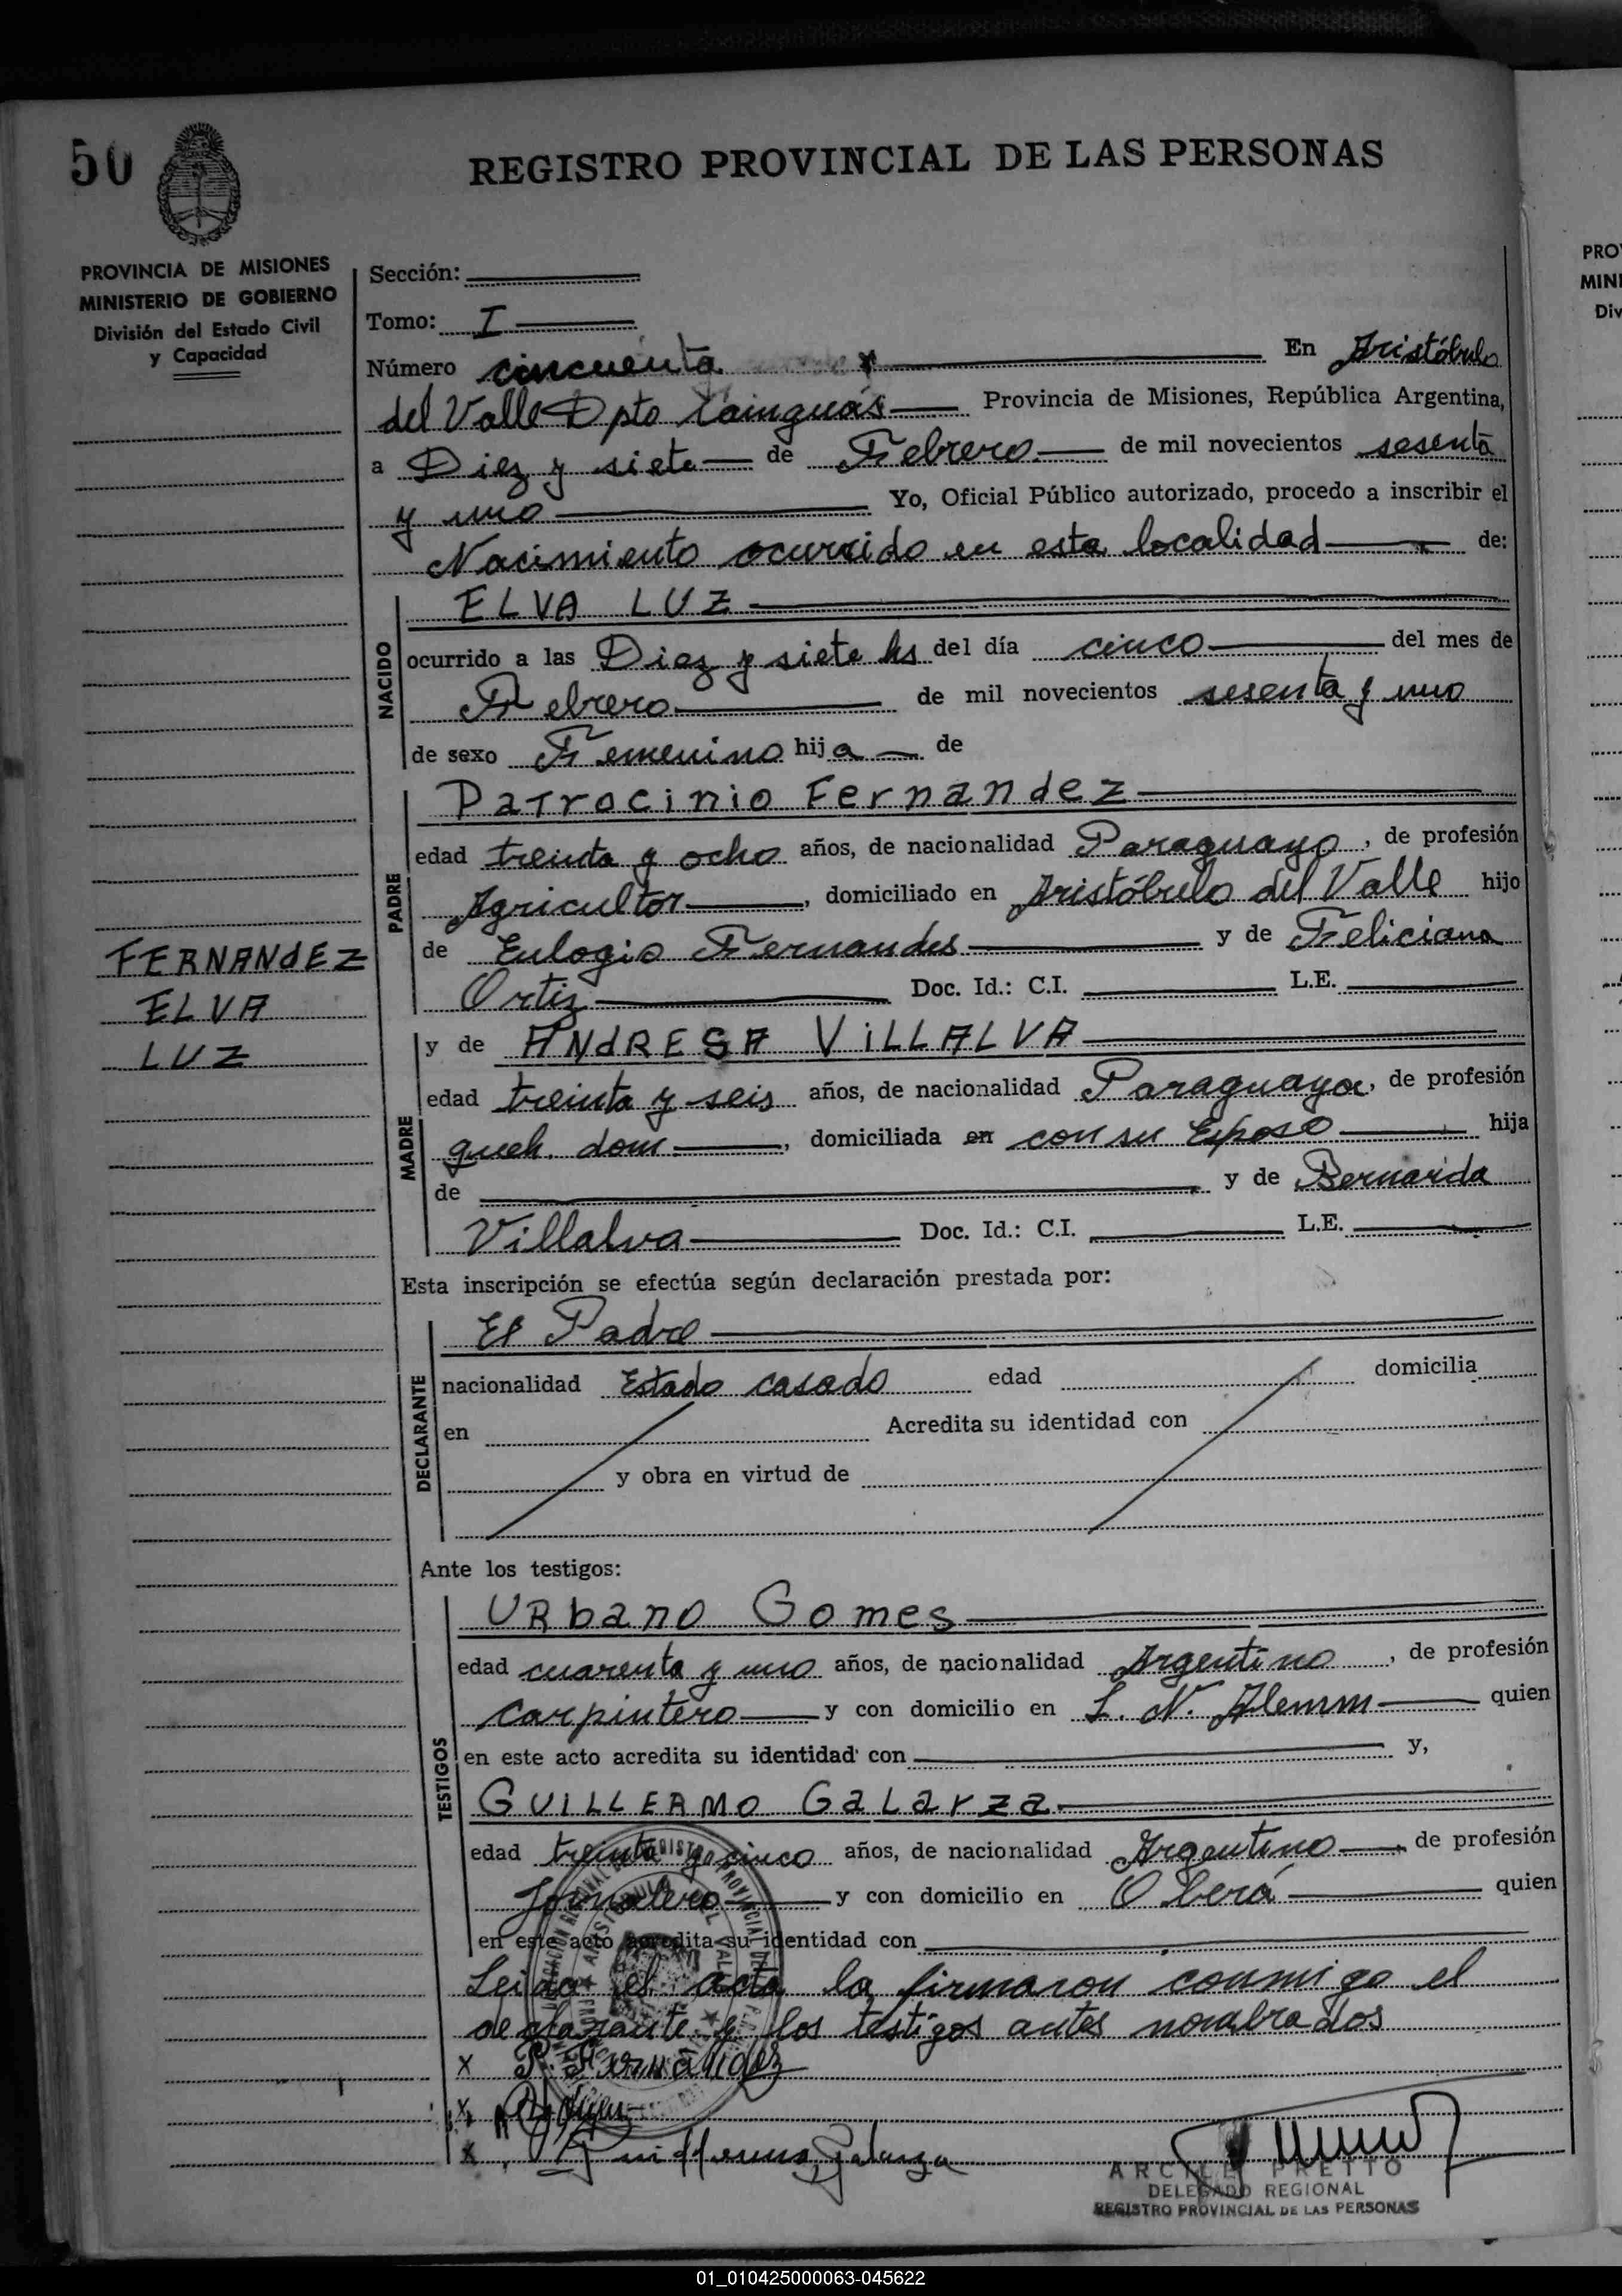 50
REGISTRO PROVINCIAL DE LAS PERSONAS
PROVINCIA DE MISIONES
MINISTERIO DE GOBIERNO
División del Estado Civil
y Capacidad
Sección:
Tomo: I
Número cincuenta En Aristóbulo
del Valle Dpto Cainguás Provincia de Misiones, República Argentina,
a Diez y siete de Febrero de mil novecientos sesenta
y uno Yo, Oficial Público autorizado, procedo a inscribir el
Nacimiento ocurrido en esta localidad de:
NACIDO
ELVA LUZ
ocurrido a las Diez y siete hs del día cinco del mes de
Febrero de mil novecientos sesenta y uno
de sexo Femenino hija de
PADRE
Patrocinio Fernandez
edad treinta y ocho años, de nacionalidad Paraguayo, de profesión
Agricultor, domiciliado en Aristóbulo del Valle hijo
de Eulogio Fernandes y de Feliciana
Ortiz Doc. Id.: C.I. L.E.
FERNANdEZ
ELVA
LUZ
MADRE
y de ANdRESA ViLLALVA
edad treinta y seis años, de nacionalidad Paraguaya, de profesión
queh. dom., domiciliada en con su Esposo hija
de y de Bernarda
Villalva Doc. Id.: C.I. L.E.
Esta inscripción se efectúa según declaración prestada por:
DECLARANTE
El Padre
nacionalidad Estado casado edad domicilia
en Acredita su identidad con
y obra en virtud de
Ante los testigos:
TESTIGOS
URbano Gomes
edad cuarenta y uno años, de nacionalidad Argentino, de profesión
carpintero y con domicilio en L. N. Alemm quien
en este acto acredita su identidad con y,
GUILLERMO GaLarza
edad treinta y cinco años, de nacionalidad Argentino, de profesión
Jornalero y con domicilio en Oberá quien
en este acto acredita su identidad con
Leida el acta la firmaron conmigo el
declarante y los testigos antes nombrados
x P. Fernández
x
x Guillermo Galarza
PRETTO
DELEGADO REGIONAL
REGISTRO PROVINCIAL DE LAS PERSONAS
PRO
MINI
Div
01_010425000063-045622